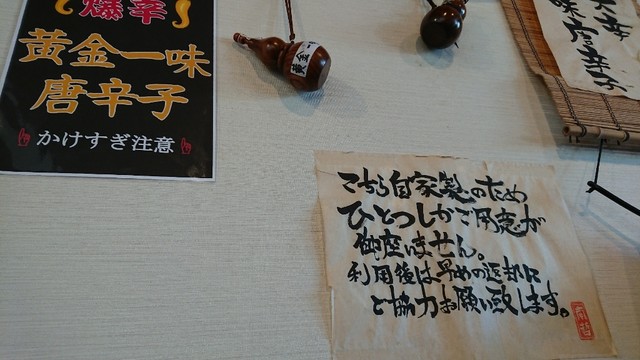 爆辛
黄金一味
唐辛子
かけすぎ注意
黄金一
味唐辛子
こちら自家製のため
ひとつしかご用意が
御座いません。
利用後は早めの返却に
ご協力お願い致します。